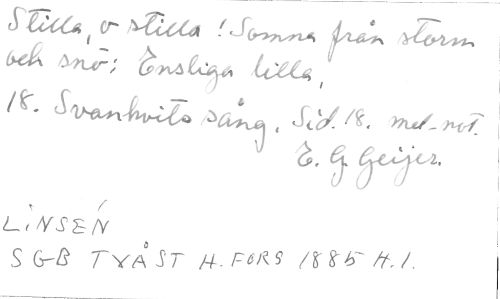 Stilla, o stilla! Somna från storm
och snö; Ensliga lilla,
18. Svanhvits sång. Sid. 18. mel-not.
E. G. Geijer.
LINSÉN
SGB TVÅST H.FORS 1885 H.1.